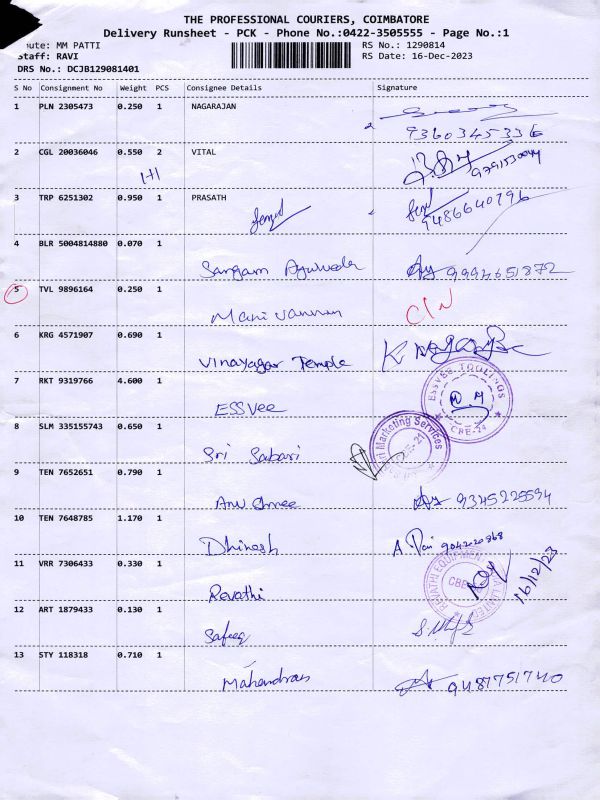 THE PROFESSIONAL COURIERS, COIMBATORE
Delivery Runsheet - PCK - Phone No.:0422-3505555 - Page No.:1
oute: MM PATTI RS No.: 1290814
Staff: RAVI RS Date: 16-Dec-2023
DRS No.: DCJB129081401
S No Consignment No Weight PCS Consignee Details Signature
1 PLN 2305473 0.250 1 NAGARAJAN
9360345336
2 CGL 20036046 0.550 2 VITAL
1+1
3 TRP 6251302 0.950 1 PRASATH
9486640796
4 BLR 5004814880 0.070 1
Sangam Ayurveda 9994651872
5 TVL 9896164 0.250 1
Manivannan
6 KRG 4571907 0.690 1
Vinayagar Temple
7 RKT 9319766 4.600 1
ESSVee ESSVEE TOOLINGS CBE-24
8 SLM 335155743 0.650 1
Sri Sabari Marketing Services
9 TEN 7652651 0.790 1
9345225594
10 TEN 7648785 1.170 1
Dhinesh 9042020868
11 VRR 7306433 0.330 1
Revathi REVATHI EQUIPMENT 16/12/23
12 ART 1879433 0.130 1
Safeeq
13 STY 118318 0.710 1
Mahendran 9487751740